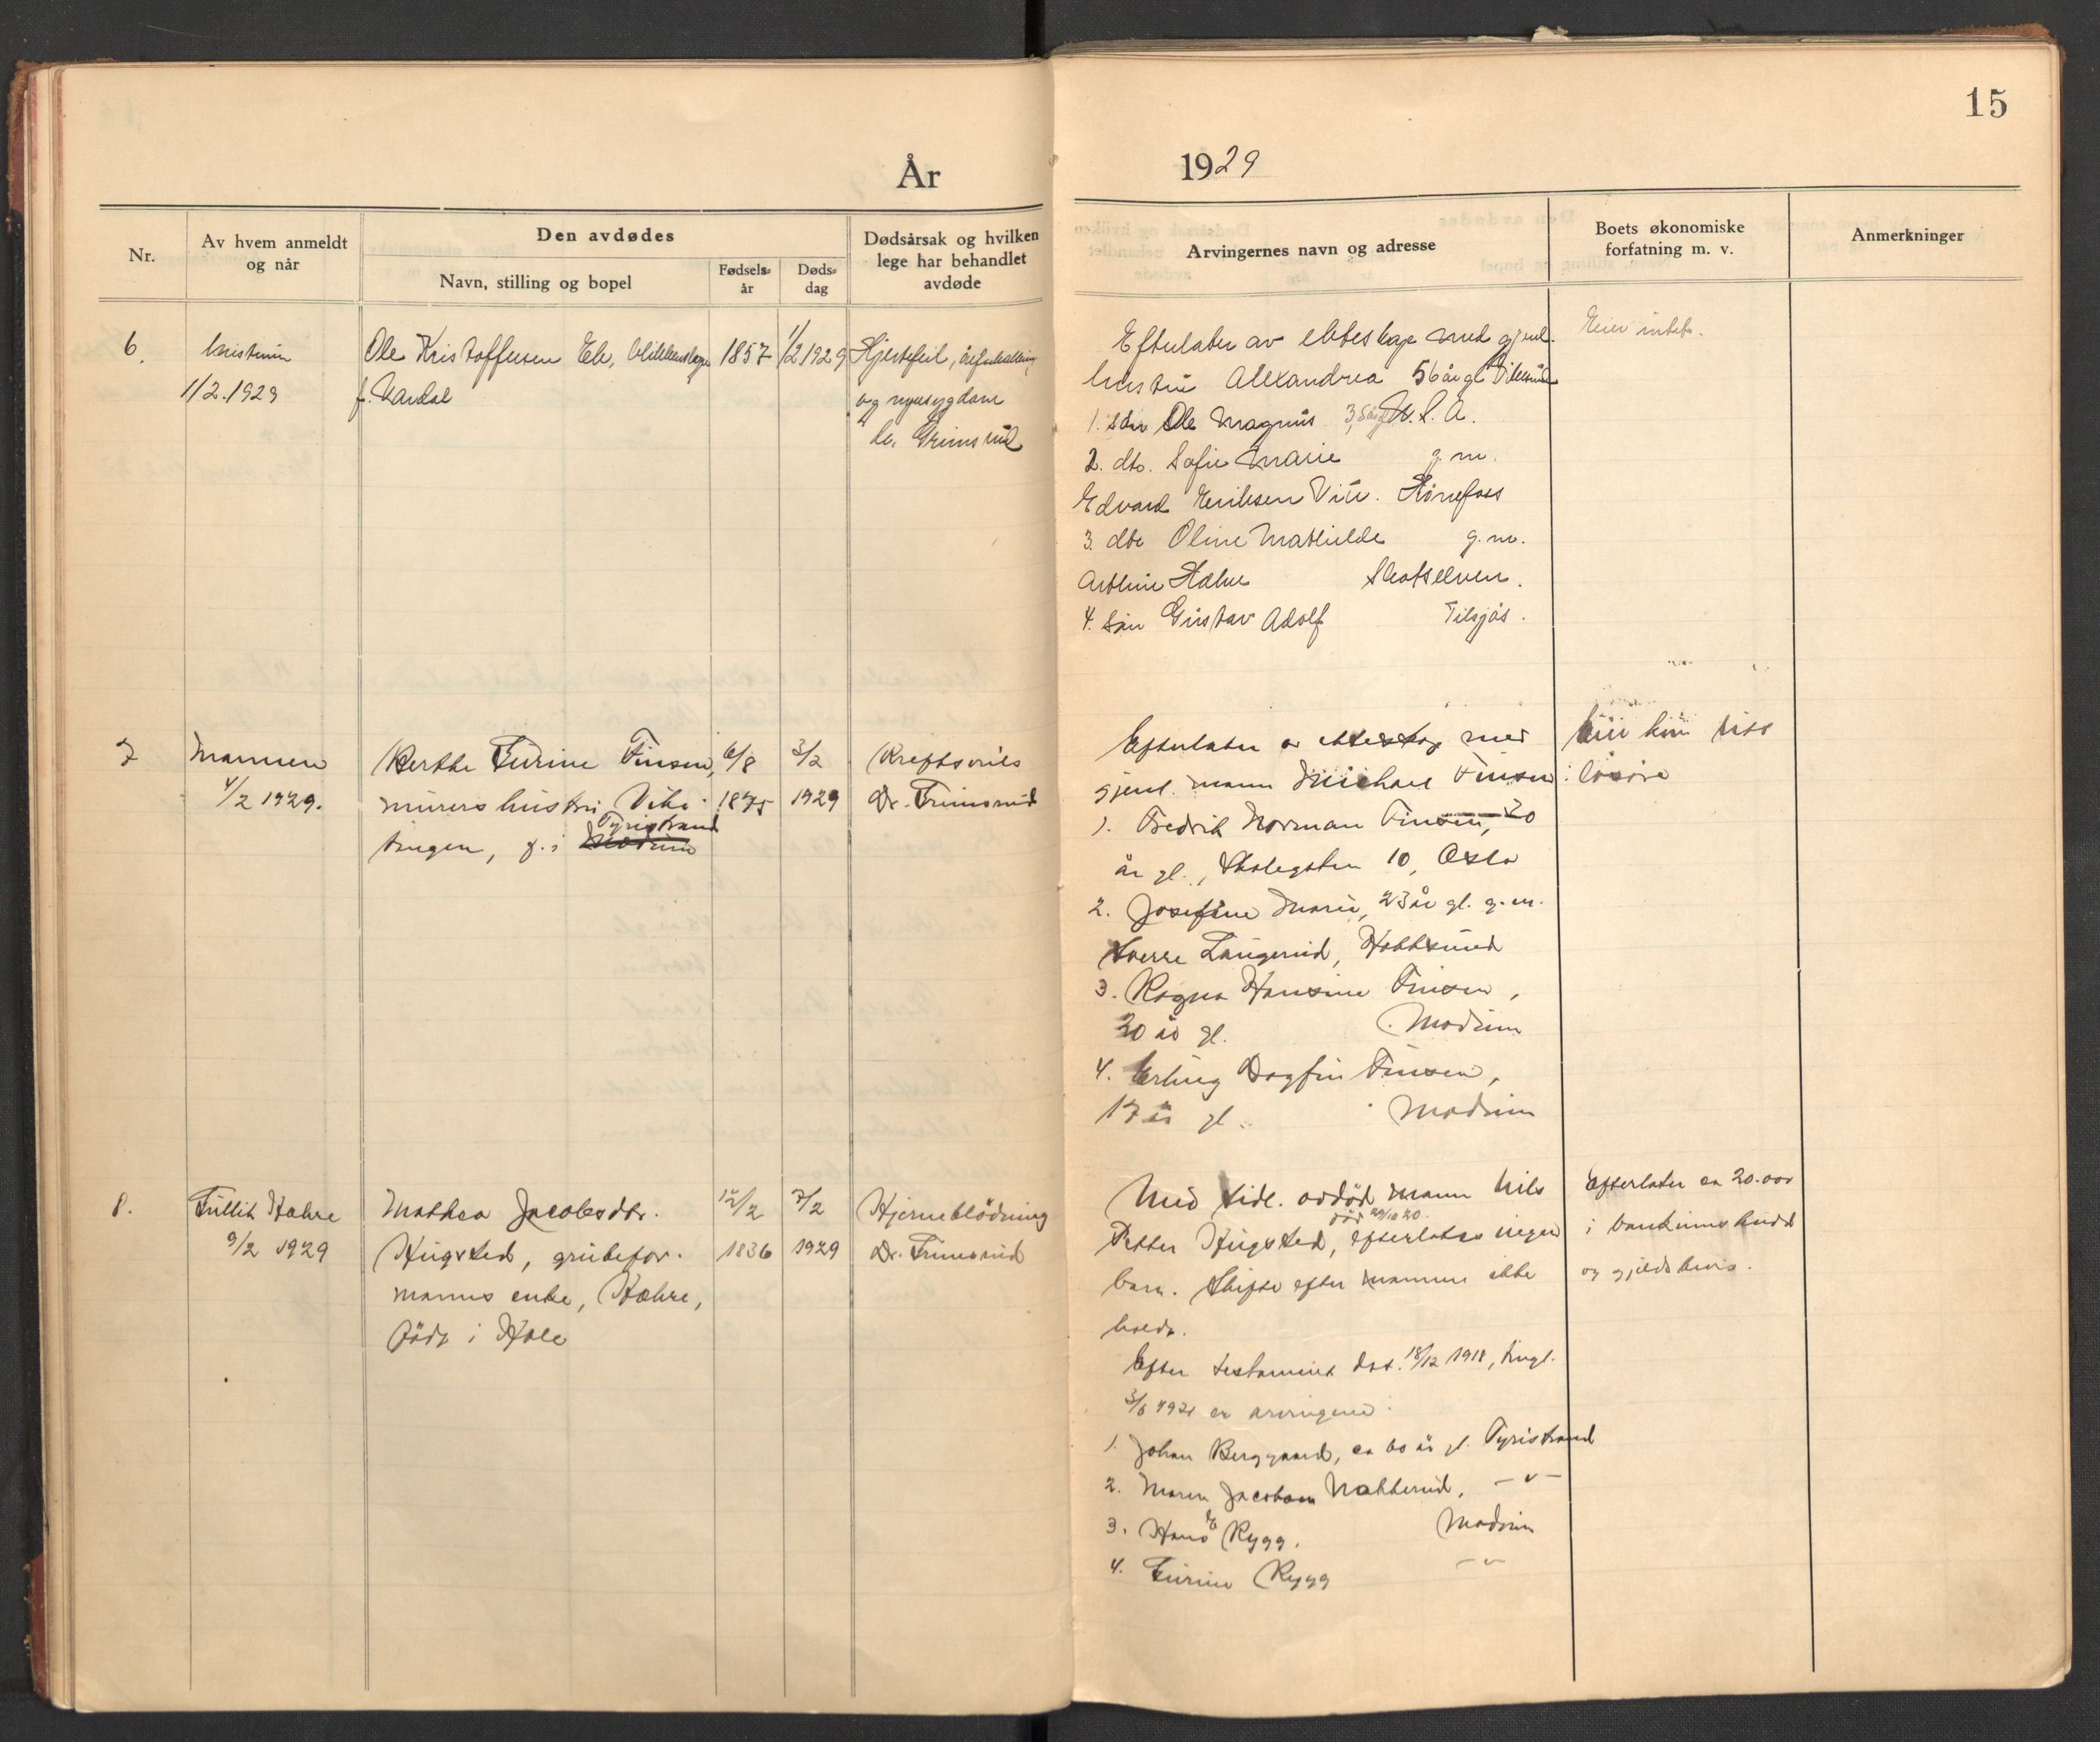 15
År 1929
Nr.
Av hvem anmeldt
og når
Den avdødes
Navn, stilling og bopel
Fødsels-
år
Døds-
dag
Dødsårsak og hvilken
lege har behandlet
avdøde
Arvingernes navn og adresse
Boets økonomiske
forfatning m. v.
Anmerkninger
6.
hustruen
1/2.1929
Ole Kristoffersen Ek,
f.
1857
1/2 1929
Hjertefeil,
og nyresygdom
Grimsrud
Efterlater av ekteskap med gjenl.
hustru Alexandrea 56 år gl
1. sön Ole Magnus U.S.A.
2. dtr. Sofie Marie g.m.
Edvard Eriksen Hönefoss
3. dtr Oline Mathilde g.m.
Halve Skotselven.
4. Sön Gustav Adolf
Eier intet.
7
Mannen
4/2 1929.
Berthe Turine Finsen,
murers hustru, Viker
tangen, f. i Tyristrand
Modum
6/8
1875
3/2
1929
Kreftsvuls
Dr. Grimsrud
Efterlater av ekteskap med
gjenl. mann Michael Finsen
1. Fredrik Norman Finsen, 30
år gl., Skolegaten 10, Oslo
2. Josefine Marie, 23 år gl. g.m.
Sverre Langerud, Hokksund
3. Ragna Hansine Finsen,
20 år gl. Modum
4. Erling Dagfin Finsen,
17 år gl. Modum
Eier kun litt
lösöre
8.
Tullik Hæhre
9/2 1929
Mathea Jacobsdtr.
Hugsted, grubefor-
manns enke, Hæhre,
född i Hole
12/2
1836
7/2
1929
Hjerneblödning
Dr. Grimsrud
Med tidl. avdöd mann Nils
död 29/10 20.
Petter Hugsted, efterlates ingen
barn. Skifte efter mannen ikke
holdt.
Efter testament dat. 18/12 1918, tingl.
3/6 1921 er arvingene:
1. Johan Berggaard, ca 60 år gl. Tyristrand
2. Maren Jacobsen Nakkerud, -"-
3. Hans Rygg. Modum
4. Turine Rygg -"-
Efterlater ca 20.000
i bankinnskudd
og gjeldsbevis.